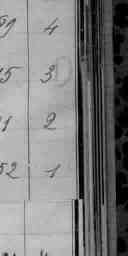 4
5 3
1 2
52 1